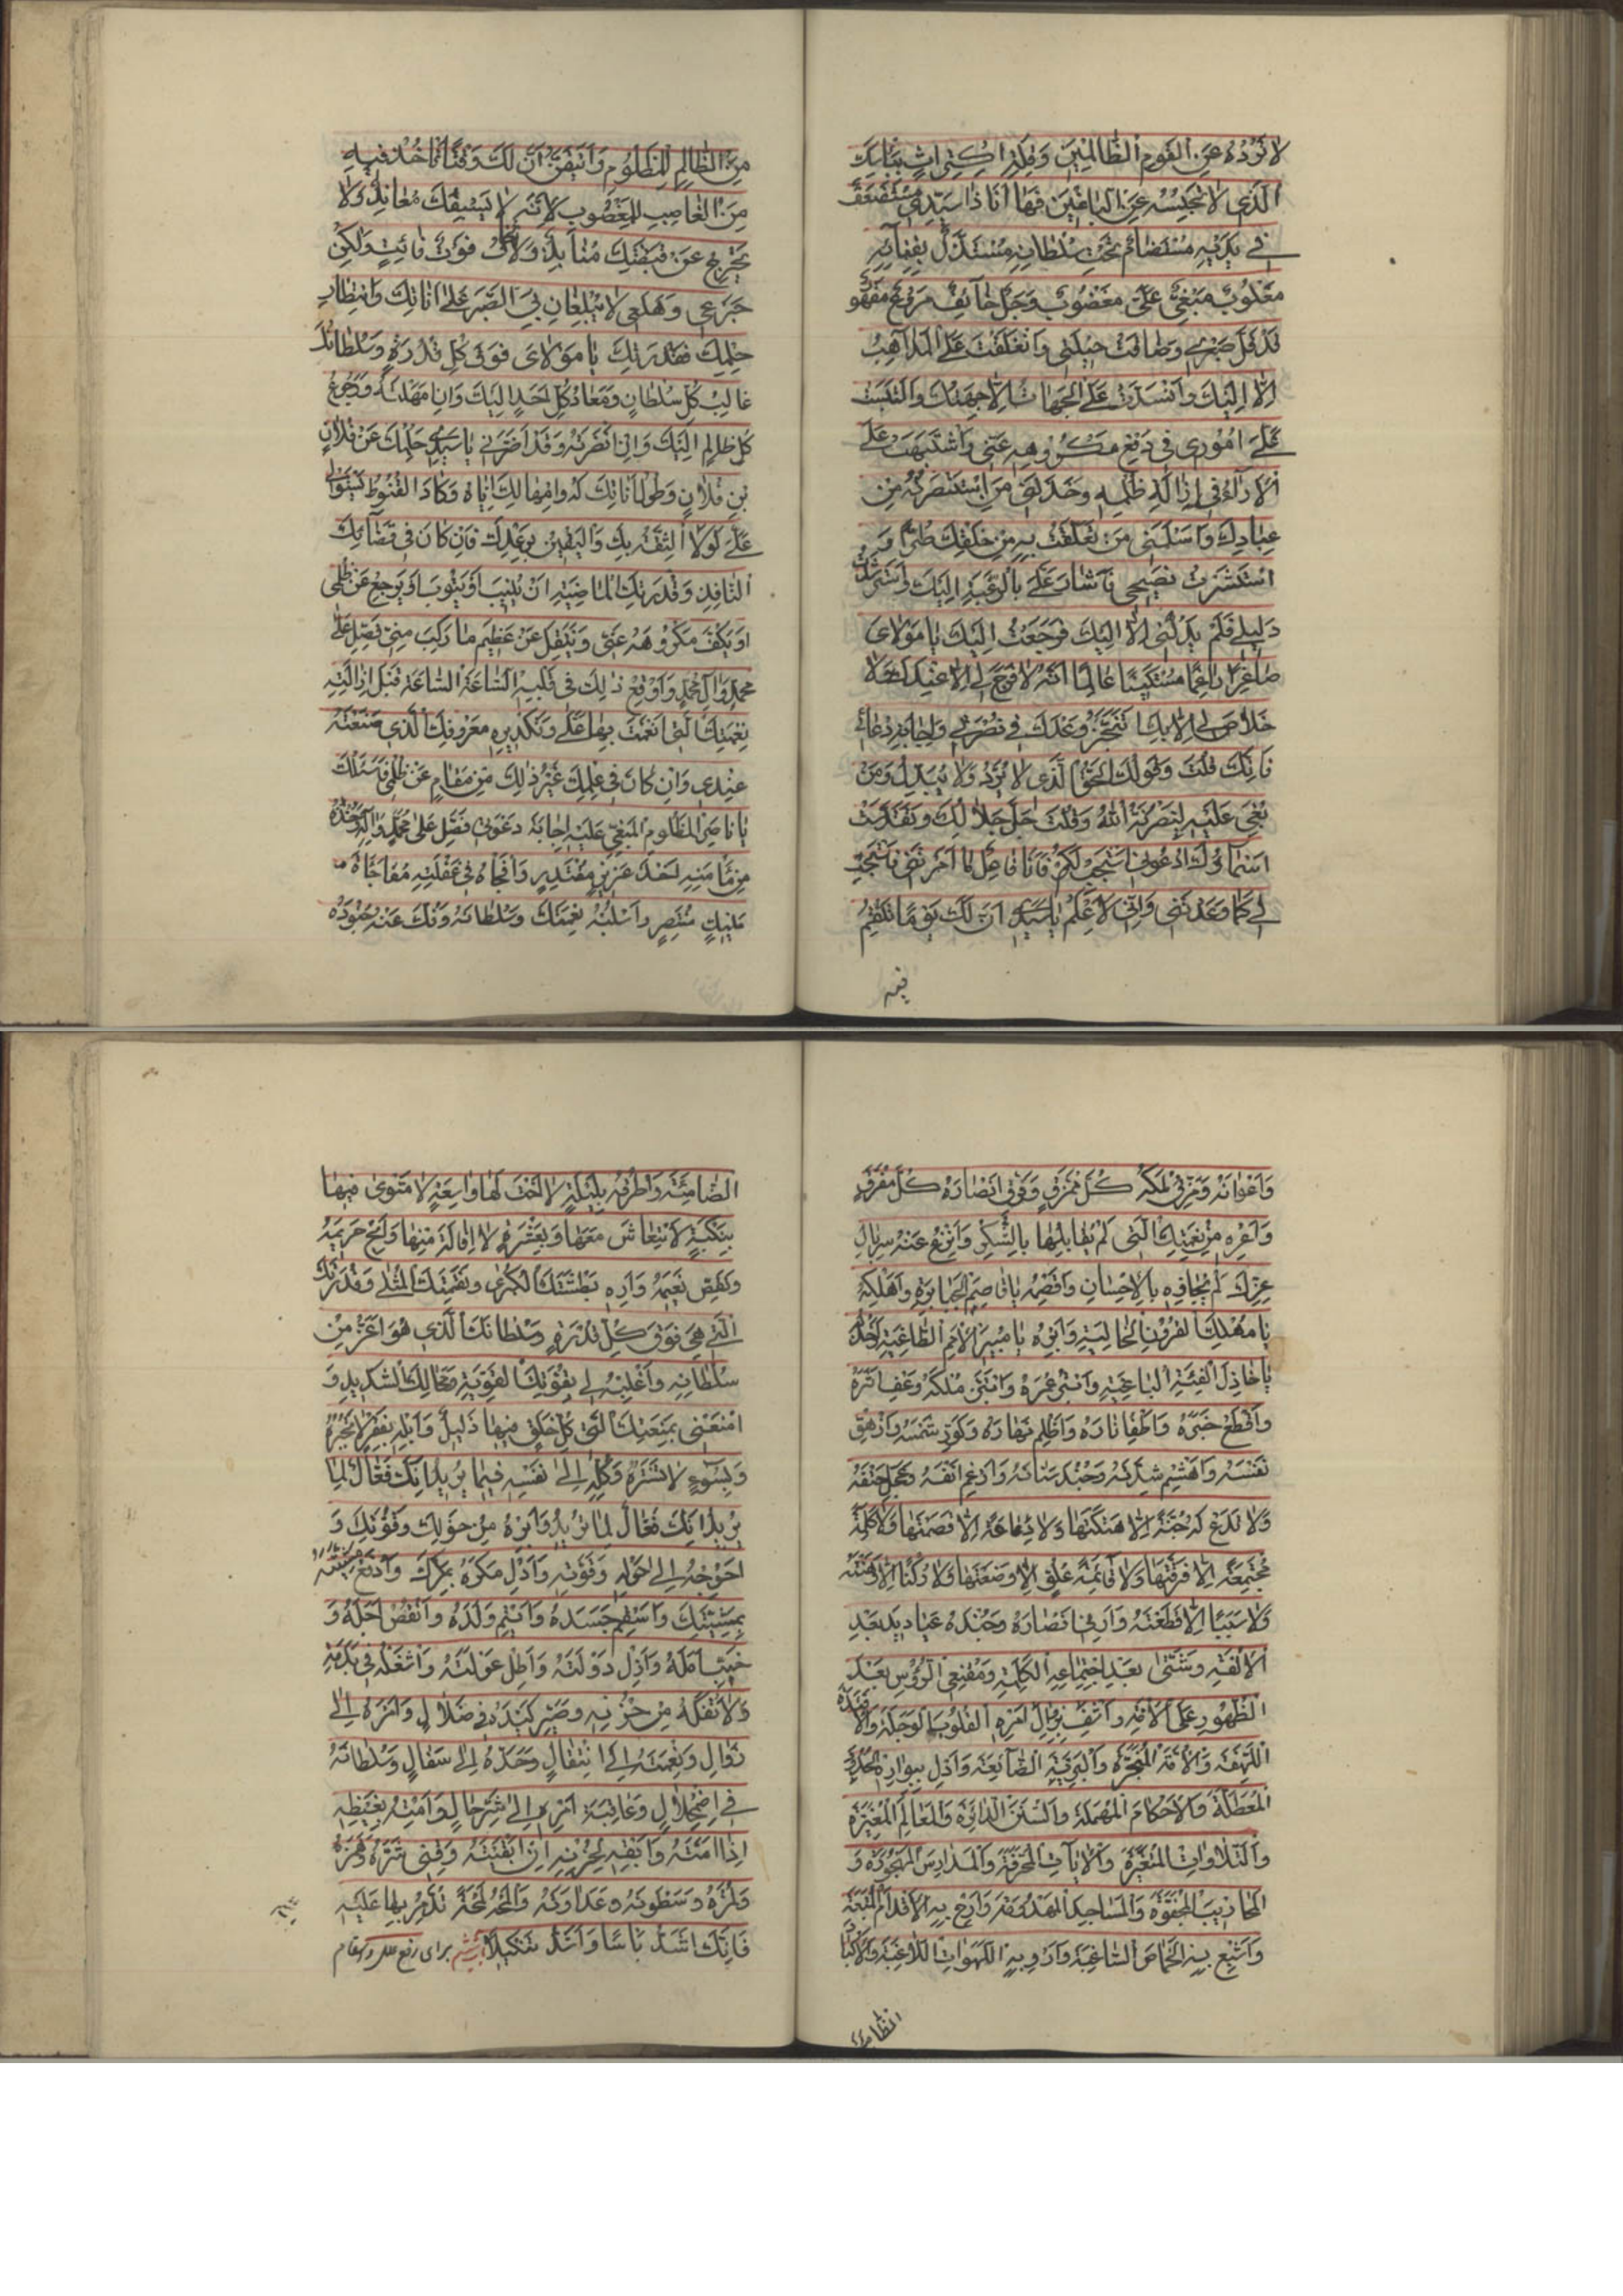 لا تَرُدُّهُ عَنِ القَومِ الظّالِمينَ وَقِلَّةِ اكتِراثٍ بِبَابِكَ
الَّذي لا تَحبِسُهُ عَنِ الباغينَ فَها اَنَا ذا سَيِّدي مُستَضعَفٌ
في يَدَيهِ مُستَضامٌ تَحتَ سُلطانِهِ مُستَذَلٌّ بِفِنائِهِ
مَغلُوبٌ مَبغِيٌّ عَلَيَّ مَغضُوبٌ وَجِلٌ خائِفٌ مُرَوَّعٌ مَقهُورٌ
قَد قَلَّ صَبري وَضاقَت حيلَتي وَانغَلَقَت عَلَيَّ المَذاهِبُ
اِلّا اِلَيكَ وَانسَدَّت عَلَيَّ الجَهاتُ اِلّا جِهَتُكَ وَالتَبَسَت
عَلَيَّ اُمُوري في دَفعِ مَكرُوهِهِ عَنّي وَاشتَبَهَت عَلَيَّ
الآراءُ في اِزالَةِ ظُلمِهِ وَخَذَلَني مَنِ استَنصَرتُهُ مِن
عِبادِكَ وَاَسلَمَني مَن تَعَلَّقتُ بِهِ مِن خَلقِكَ طُرّاً وَ
استَشَرتُ نَصيحي فَاَشارَ عَلَيَّ بِالرَّغبَةِ اِلَيكَ وَاستَرشَدتُ
دَليلي فَلَم يَدُلَّني اِلّا اِلَيكَ فَرَجَعتُ اِلَيكَ يا مَولايَ
صاغِراً راغِماً مُستَكيناً عالِماً اَنَّهُ لا فَرَجَ لي اِلّا عِندَكَ وَلا
خَلاصَ لي اِلّا بِكَ اَنتَجِزُ وَعدَكَ في نُصرَتي وَاِجابَةِ دُعائي
فَاِنَّكَ قُلتَ وَقَولُكَ الحَقُّ الَّذي لا يُرَدُّ وَلا يُبَدَّلُ وَمَن
بُغِيَ عَلَيهِ لَيَنصُرَنَّهُ اللهُ وَقُلتَ جَلَّ جَلالُكَ وَتَقَدَّسَت
اَسماؤُكَ ادعُوني اَستَجِب لَكُم فَاَنَا فاعِلٌ ما اَمَرتَني فَاستَجِب
لي كَما وَعَدتَني وَاِنّي لَاَعلَمُ يا سَيِّدي اَنَّ لَكَ يَوماً تَنتَقِمُ
فيه
مِنَ الظّالِمِ لِلمَظلُومِ وَاَتَيَقَّنُ اَنَّ لَكَ وَقتاً تَأخُذُ فيهِ
مِنَ الغاصِبِ لِلمَغصُوبِ لِاَنَّهُ لا يَسبِقُكَ مُعانِدٌ وَلا
يَخرُجُ عَن قَبضَتِكَ مُنابِذٌ وَلا تَخافُ فَوتَ فائِتٍ وَلكِن
جَزَعي وَهَلَعي لا يَبلُغانِ بِيَ الصَّبرَ عَلى اَناتِكَ وَانتِظارِ
حِلمِكَ فَقُدرَتُكَ يا مَولايَ فَوقَ كُلِّ قُدرَةٍ وَسُلطانُكَ
غالِبُ كُلِّ سُلطانٍ وَمَعادُ كُلِّ اَحَدٍ اِلَيكَ وَاِن اَمهَلتَهُ وَرُجُوعُ
كُلِّ ظالِمٍ اِلَيكَ وَاِن اَنظَرتَهُ وَقَد اَضَرَّني يا سَيِّدي حِلمُكَ عَن فُلانِ
بنِ فُلانٍ وَطُولُ اَناتِكَ لَهُ وَاِمهالُكَ اِيّاهُ وَكادَ القُنُوطُ يَستَولي
عَلَيَّ لَولا الثِّقَةُ بِكَ وَاليَقينُ بِوَعدِكَ فَاِن كانَ في قَضائِكَ
النّافِذِ وَقُدرَتِكَ الماضِيَةِ اَن يُنيبَ اَو يَتُوبَ اَو يَرجِعَ عَن ظُلمي
اَو يَكُفَّ مَكرُوهَهُ عَنّي وَيَنتَقِلَ عَن عَظيمِ ما رَكِبَ مِنّي فَصَلِّ عَلى
مُحَمَّدٍ وَآلِ مُحَمَّدٍ وَاَوقِع ذلِكَ في قَلبِهِ السّاعَةَ السّاعَةَ قَبلَ اِزالَتِهِ
نِعمَتَكَ الَّتي اَنعَمتَ بِها عَلَيَّ وَتَكديرِهِ مَعرُوفَكَ الَّذي صَنَعتَهُ
عِندي وَاِن كانَ في عِلمِكَ غَيرُ ذلِكَ مِن مَقامٍ عَن ظُلمي فَاَسئَلُكَ
يا ناصِرَ المَظلُومِ المَبغِيِّ عَلَيهِ اِجابَةَ دَعوَتي فَصَلِّ عَلى مُحَمَّدٍ وَآلِهِ وَخُذهُ
مِن مَأمَنِهِ اَخذَ عَزيزٍ مُقتَدِرٍ وَافجَأهُ في غَفلَتِهِ مُفاجَاةَ
مَليكٍ مُنتَصِرٍ وَاسلُبهُ نِعمَتَكَ وَسُلطانَهُ وَفُكَّ عَنهُ جُنُودَهُ
وَاَعوانَهُ وَمَزِّق مُلكَهُ كُلَّ مُمَزَّقٍ وَفَرِّق اَنصارَهُ كُلَّ مُفَرَّقٍ
وَاَعِرهُ مِن نِعمَتِكَ الَّتي لَم يُقابِلها بِالشُّكرِ وَانزِع عَنهُ سِربالَ
عِزِّكَ لَم يُجازِهِ بِالاِحسانِ وَاقصِمهُ يا قاصِمَ الجَبابِرَةِ وَاَهلِكهُ
يا مُهلِكَ القُرُونِ الخالِيَةِ وَاَبِرهُ يا مُبيرَ الاُمَمِ الطّاغِيَةِ وَاخذُلهُ
يا خاذِلَ الفِئَةِ الباغِيَةِ وَابتُر عُمرَهُ وَابتَزَّ مُلكَهُ وَعَفِّ اَثَرَهُ
وَاقطَع خَبَرَهُ وَاَطفِ نارَهُ وَاَظلِم نَهارَهُ وَكَوِّر شَمسَهُ وَاَزهِق
نَفسَهُ وَاهشِم شِدَّتَهُ وَجُبَّ سَنامَهُ وَاَرغِم اَنفَهُ وَعَجِّل حَتفَهُ
وَلا تَدَع لَهُ جُنَّةً اِلّا هَتَكتَها وَلا دِعامَةً اِلّا قَصَمتَها وَلا كَلِمَةً
مُجتَمِعَةً اِلّا فَرَّقتَها وَلا قائِمَةَ عُلُوٍّ اِلّا وَضَعتَها وَلا رُكناً اِلّا وَهَنتَهُ
وَلا سَبَباً اِلّا قَطَعتَهُ وَاَرِني اَنصارَهُ وَجُندَهُ عَباديدَ بَعدَ
الاُلفَةِ وَشَتّى بَعدَ اجتِماعِ الكَلِمَةِ وَمُقنِعِي الرُّؤُسِ بَعدَ
الظُّهُورِ عَلَى الاُمَّةِ وَاشفِ بِزَوالِ اَمرِهِ القُلُوبَ الوَجِلَةَ وَالاَفئِدَةَ
اللَّهِفَةَ وَالاُمَّةَ المُتَحَيِّرَةَ وَالبَرِيَّةَ الضّائِعَةَ وَاَدِل بِبَوارِهِ الحُدُودَ
المُعَطَّلَةَ وَالاَحكامَ المُهمَلَةَ وَالسُّنَنَ الدّاثِرَةَ وَالمَعالِمَ المُغَيَّرَةَ
وَالتِّلاواتِ المُغَيَّرَةَ وَالآياتِ المُحَرَّفَةَ وَالمَدارِسَ المَهجُورَةَ وَ
المَحاريبَ المَجفُوَّةَ وَالمَساجِدَ المَهدُومَةَ وَاَرِح بِهِ الاَقدامَ المُتعَبَةَ
وَاَشبِع بِهِ الخِماصَ السّاغِبَةَ وَاَروِ بِهِ اللَّهَواتِ اللّاغِبَةَ وَالاَكبادَ
الظامئة
الظّامِئَةَ وَاطرُقهُ بِلَيلَةٍ لا اُختَ لَها وَاسِعَةٍ لا مَثوى فيها
بِنَكبَةٍ لَا انتِعاشَ مَعَها وَبِعَثرَةٍ لا اِقالَةَ مِنها وَاَبِح حَريمَهُ
وَنَغِّص نَعيمَهُ وَاَرِهِ بَطشَتَكَ الكُبرى وَنَقِمَتَكَ المُثلى وَقُدرَتَكَ
الَّتي هِيَ فَوقَ كُلِّ قُدرَةٍ وَسُلطانَكَ الَّذي هُوَ اَعَزُّ مِن
سُلطانِهِ وَاغلِبهُ لي بِقُوَّتِكَ القَوِيَّةِ وَمِحالِكَ الشَّديدِ وَ
امنَعني بِمَنعَتِكَ الَّتي كُلُّ خَلقٍ فيها ذَليلٌ وَابتَلِهِ بِفَقرٍ لا تَجبُرُهُ
وَبِسُوءٍ لا تَستُرُهُ وَكِلهُ اِلى نَفسِهِ فيما يُريدُ اِنَّكَ فَعّالٌ لِما
تُريدُ اِنَّكَ فَعّالٌ لِما تُريدُ وَاَبرِهُ مِن حَولِكَ وَقُوَّتِكَ وَ
اَحوِجهُ اِلى حَولِهِ وَقُوَّتِهِ وَاَذِلَّ مَكرَهُ بِمَكرِكَ وَادفَع مَشِيَّتَهُ
بِمَشِيَّتِكَ وَاَسقِم جَسَدَهُ وَاَيتِم وَلَدَهُ وَانقُص اَجَلَهُ وَ
خَيِّب اَمَلَهُ وَاَزِل دَولَتَهُ وَاَطِل عَولَتَهُ وَاشغَلهُ في بَدَنِهِ
وَلا تَفُكَّهُ مِن حُزنِهِ وَصَيِّر كَيدَهُ في ضَلالٍ وَاَمرَهُ اِلى
زَوالٍ وَنِعمَتَهُ اِلَى انتِقالٍ وَجَدَّهُ اِلى سَفالٍ وَسُلطانَهُ
فِي اضمِحلالٍ وَعاقِبَةَ اَمرِهِ اِلى شَرِّ حالٍ وَاَمِتهُ بِغَيظِهِ
اِذا اَمَتَّهُ وَاَبقِهِ لِحُزنِهِ اِن اَبقَيتَهُ وَقِني شَرَّهُ وَهَمزَهُ
وَلَمزَهُ وَسَطوَتَهُ وَعَداوَتَهُ وَالمَحهُ لَمحَةً تُدَمِّرُ بِها عَلَيهِ
فَاِنَّكَ اَشَدُّ بَأساً وَاَشَدُّ تَنكيلاً برای رفع